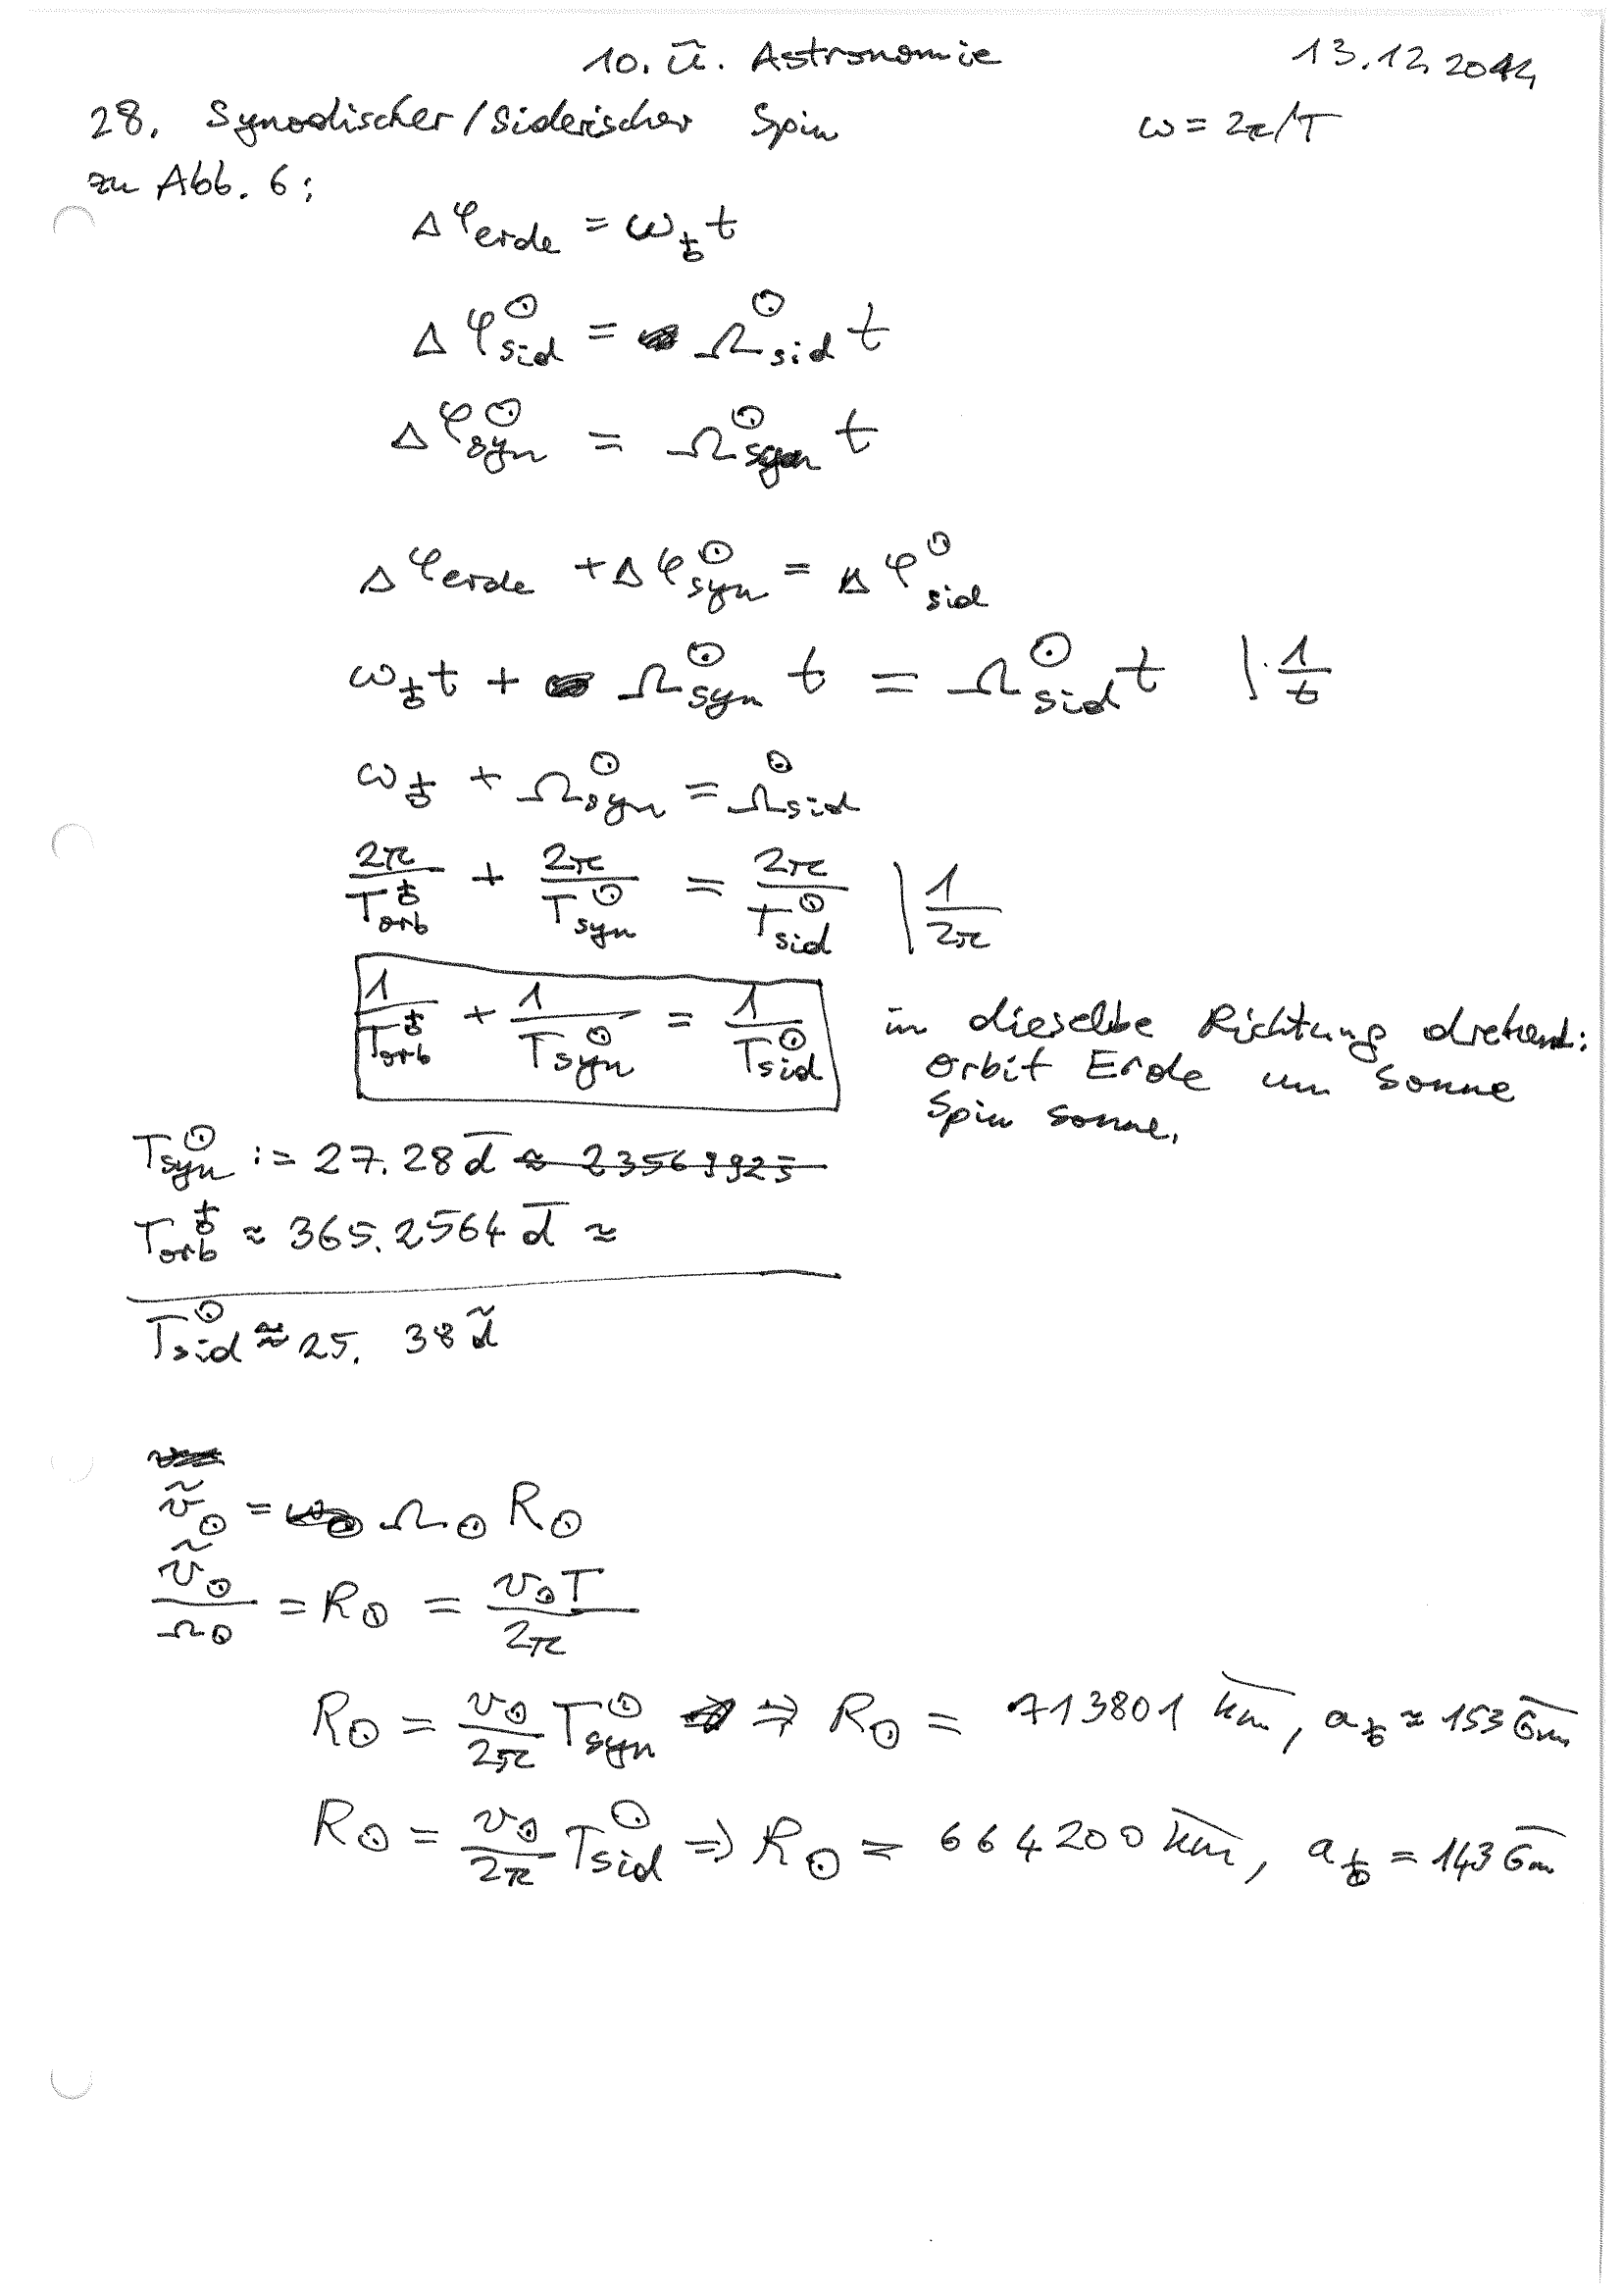 10. Ü. Astronomie 13.12.2014
28. Synodischer/Siderischer Spin ω = 2π/T
zu Abb. 6:
Δφ_erde = ω_♁ t
Δφ_sid^☉ = Ω_sid^☉ t
Δφ_syn^☉ = Ω_syn^☉ t
Δφ_erde + Δφ_syn^☉ = Δφ_sid^☉
ω_♁ t + Ω_syn^☉ t = Ω_sid^☉ t | · 1/t
ω_♁ + Ω_syn^☉ = Ω_sid^☉
2π/T_orb^♁ + 2π/T_syn^☉ = 2π/T_sid^☉ | 1/2π
1/T_orb^♁ + 1/T_syn^☉ = 1/T_sid^☉ in dieselbe Richtung drehend:
Orbit Erde um Sonne
Spin Sonne.
T_syn^☉ := 27.28 d̅ ≈
T_orb^♁ ≈ 365.2564 d̅ ≈
T_sid^☉ ≈ 25. 38 d̃
ṽ_☉ = Ω_☉ R_☉
ṽ_☉/Ω_☉ = R_☉ = v_☉T/2π
R_☉ = v_☉/2π T_syn^☉ ⇒ R_☉ = 713801 k̅m̅, a_♁ ≈ 153 G̅m̅
R_☉ = v_☉/2π T_sid^☉ ⇒ R_☉ = 664200 k̅m̅, a_♁ = 143 G̅m̅